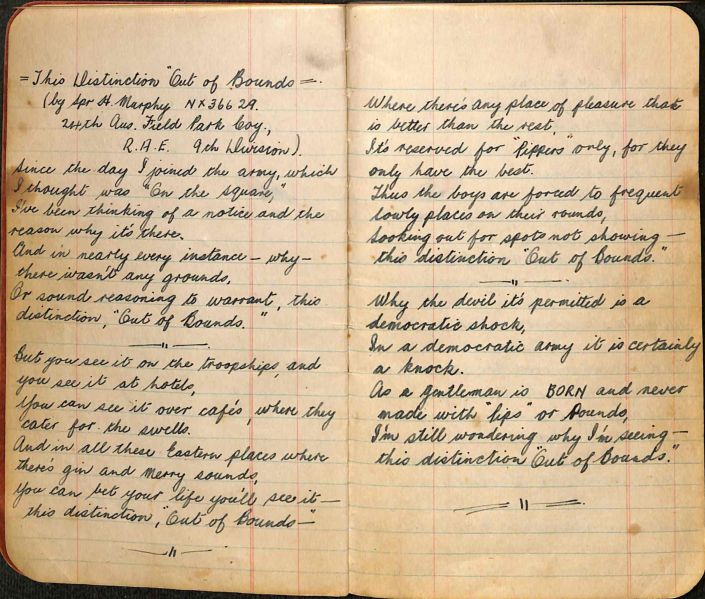 = This Distinction "Out of Bounds =.
(by Spr H. Murphy NX36629.
2/4th Aus. Field Park Coy.,
R.A.E. 9th Division).
Since the day I joined the army, which
I thought was "On the square,"
I've been thinking of a notice and the
reason why it's there.
And in nearly every instance - why -
there wasn't any grounds,
Or sound reasoning to warrant, this
distinction, "Out of Bounds."
But you see it on the troopships, and
you see it at hotels,
You can see it over café's, where they
cater for the swells.
And in all these Eastern places where
there's gin and merry sounds,
You can bet your life you'll see it -
this distinction, "Out of Bounds -"
Where there's any place of pleasure that
is better than the rest,
It's reserved for "Pippers" only, for they
only have the best.
Thus the boys are forced to frequent
lowly places on their rounds,
Looking out for spots not showing -
this distinction "Out of Bounds."
Why the devil it's permitted is a
democratic shock,
In a democratic army it is certainly
a knock.
As a gentleman is BORN and never
made with "pips" or Pounds,
I'm still wondering why I'm seeing -
this distinction "Out of Bounds."